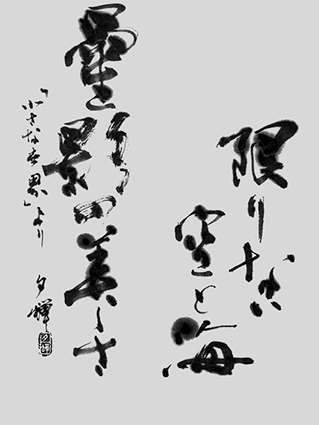 限りない
空と海
星影の美しさ
「小さな世界」より
夕